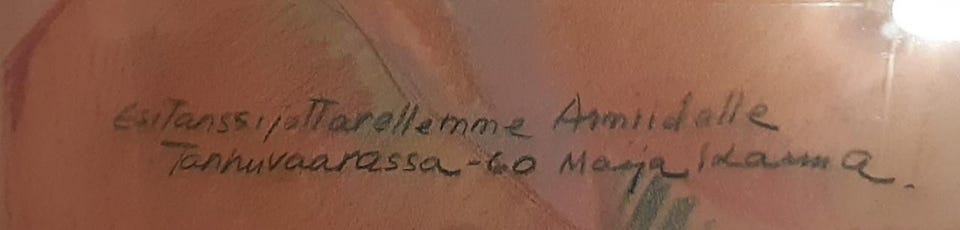 Esitanssijattarellemme Armiidalle
Tanhuvaarassa -60 Maija